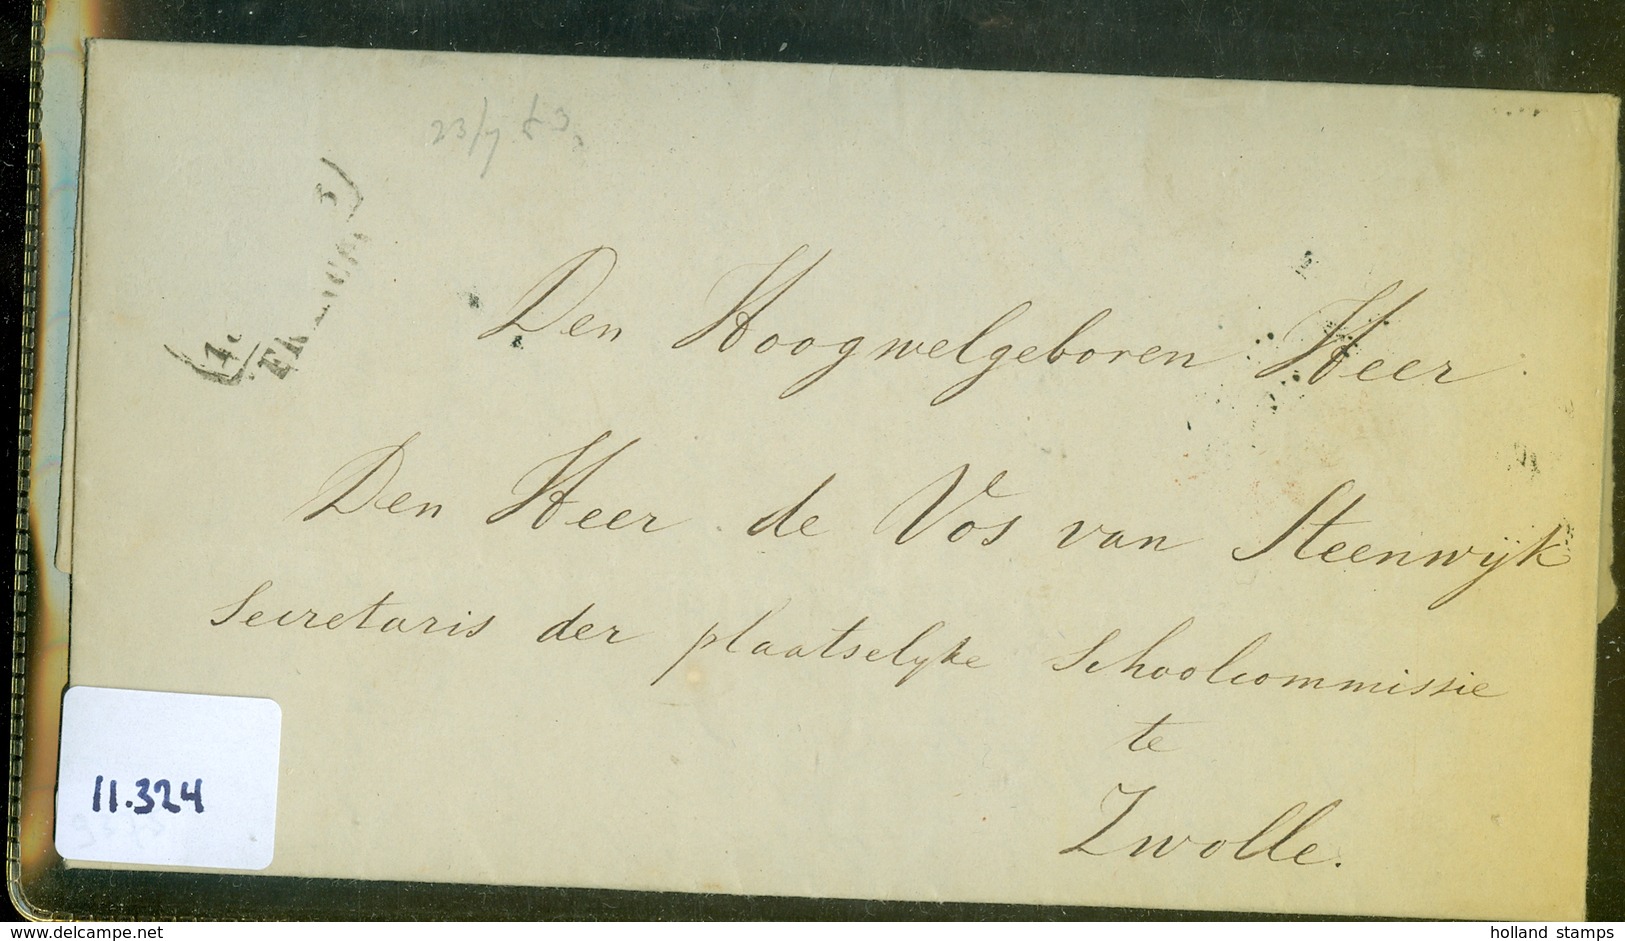 23/7 63
Den Hoogwelgeboren Heer
Den Heer de Vos van Steenwijk
Secretaris der plaatselyke Schoolcommissie
te
Zwolle.
11.324
www.delcampe.net
holland stamps